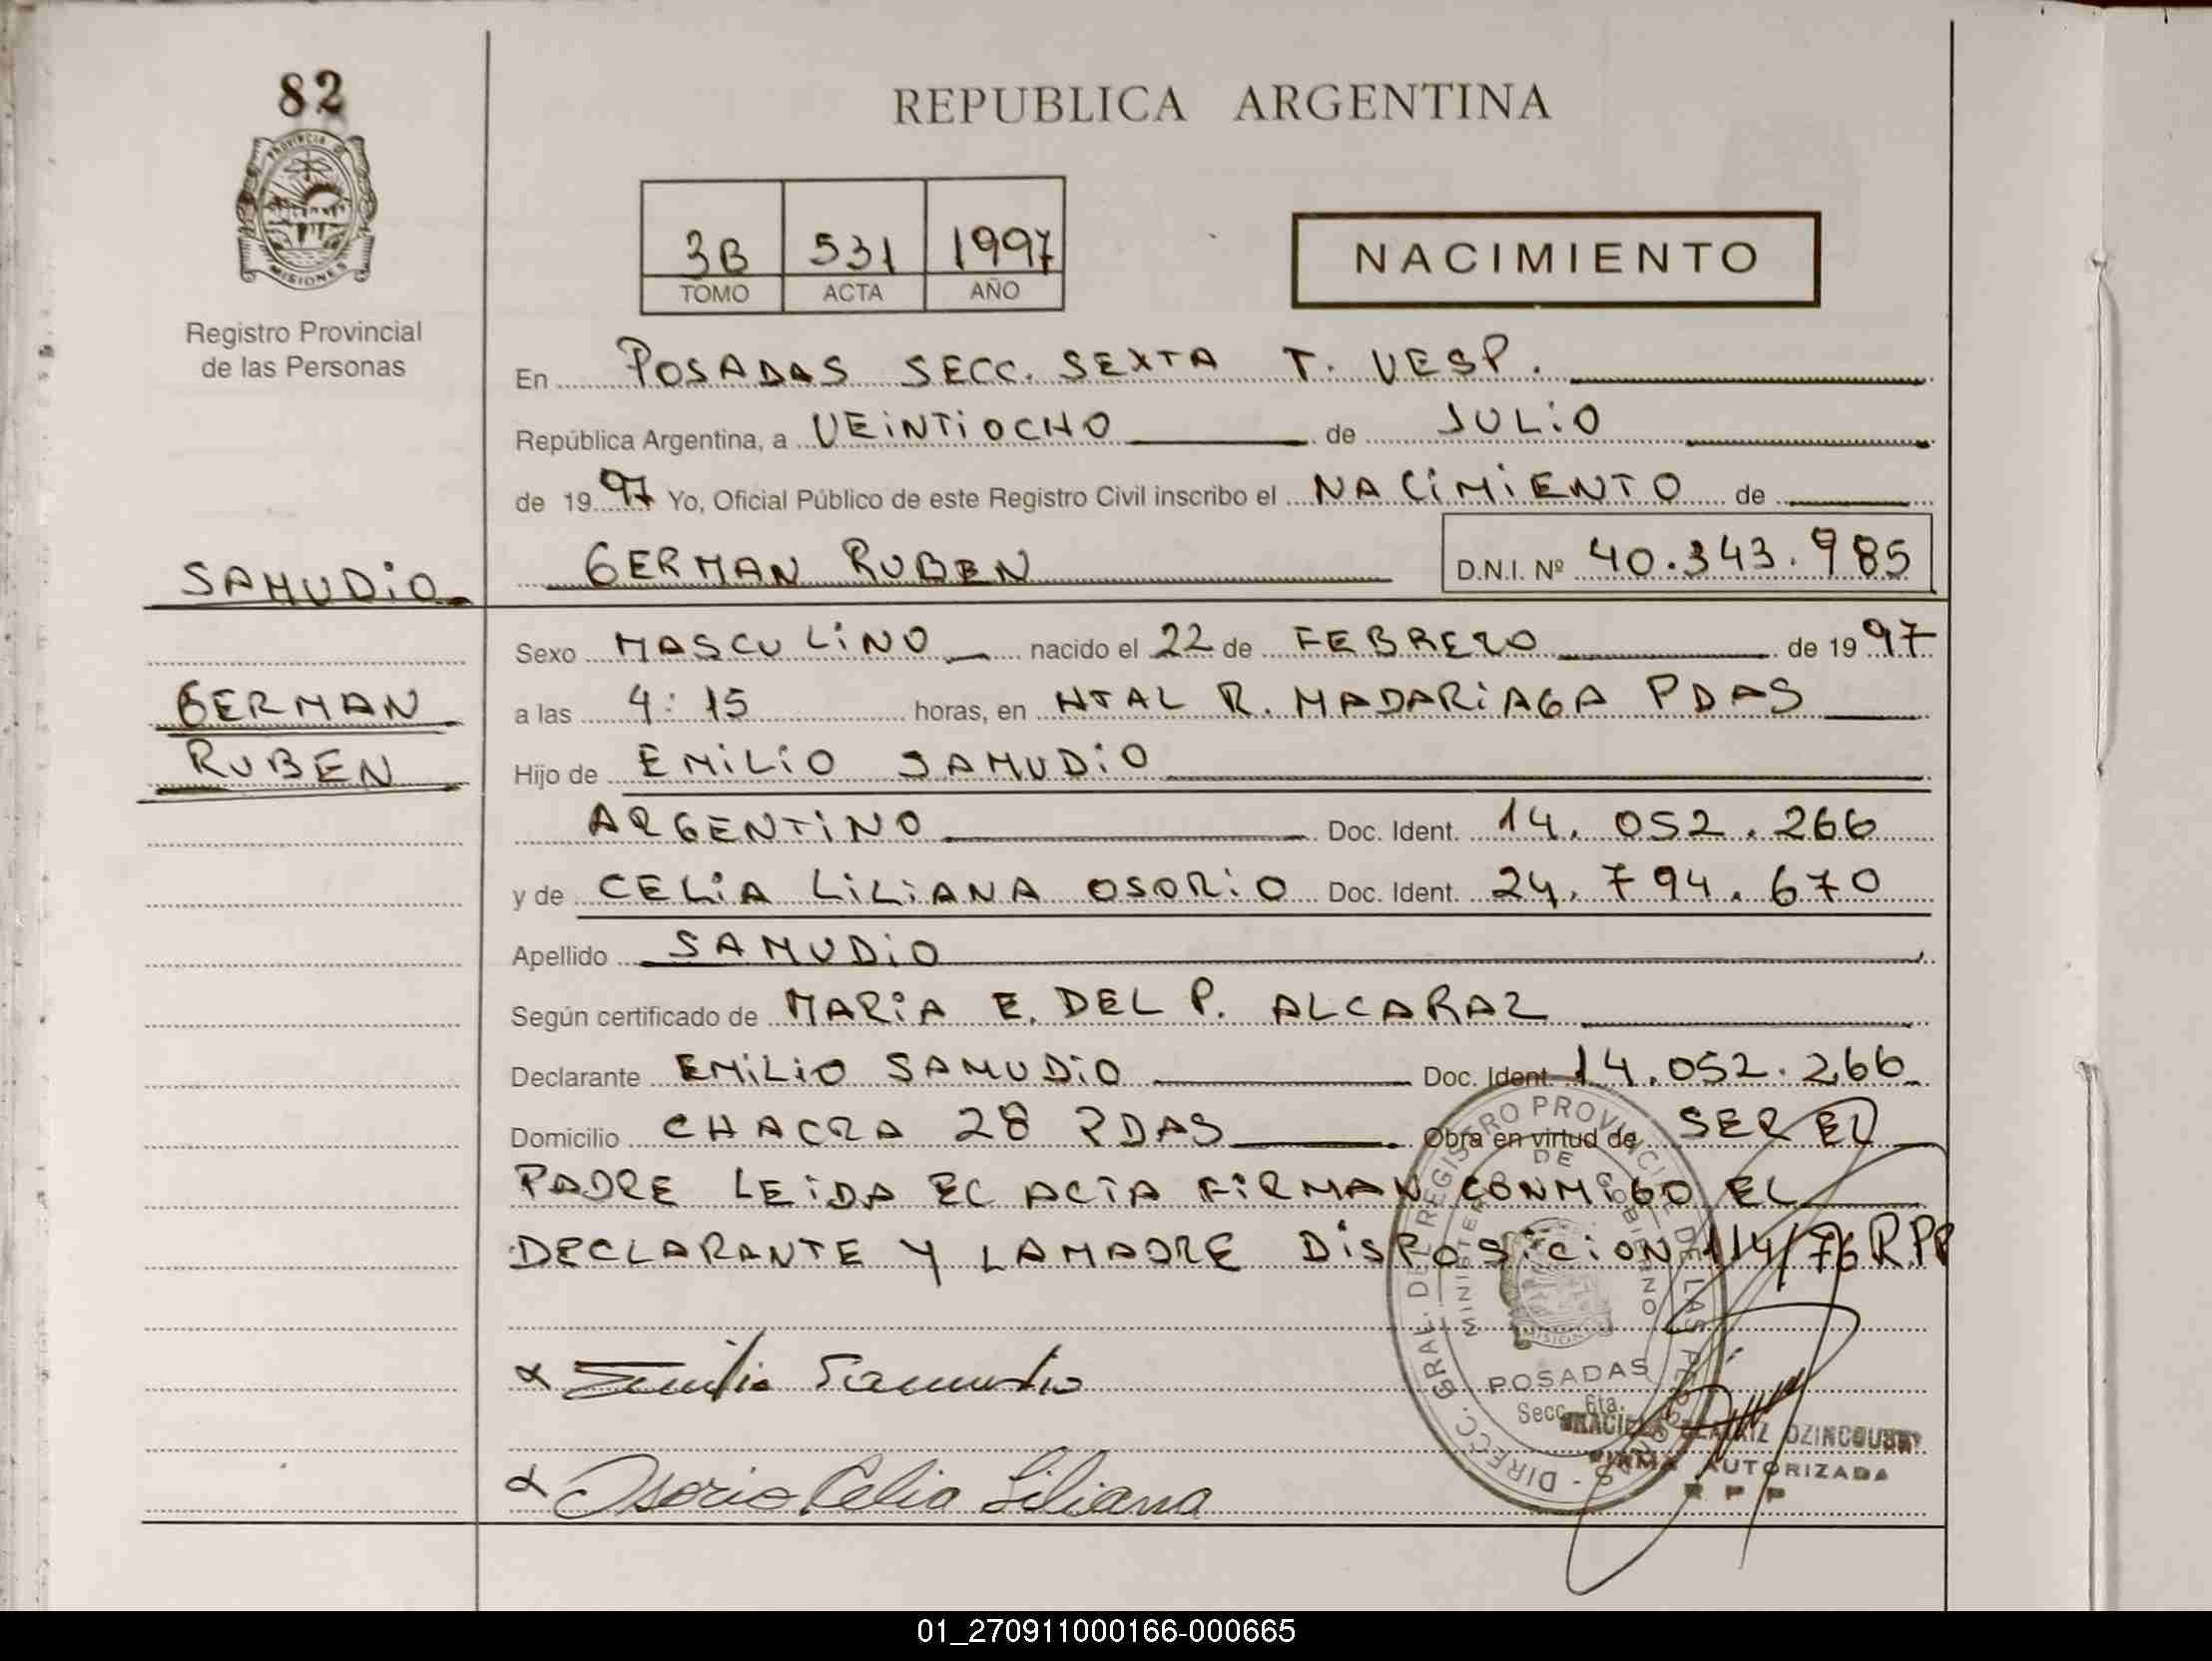 82
PROVINCIA D
MISIONES
Registro Provincial
de las Personas
SAMUDIO
GERMAN
RUBEN
REPUBLICA ARGENTINA
3B 531 1997
TOMO ACTA AÑO
NACIMIENTO
En POSADAS SECC. SEXTA T. VESP.
República Argentina, a VEINTIOCHO de JULIO
de 1997 Yo, Oficial Público de este Registro Civil inscribo el NACIMIENTO de
GERMAN RUBEN D.N.I. Nº 40.343.985
Sexo MASCULINO nacido el 22 de FEBRERO de 1997
a las 4:15 horas, en HTAL R. MADARIAGA PDAS
Hijo de EMILIO SAMUDIO
ARGENTINO Doc. Ident. 14.052.266
y de CELIA LILIANA OSORIO Doc. Ident. 24.794.670
Apellido SAMUDIO
Según certificado de MARIA E. DEL P. ALCARAZ
Declarante EMILIO SAMUDIO Doc. Ident. 14.052.266
Domicilio CHACRA 28 PDAS Obra en virtud de SER EL
PADRE LEIDA EL ACTA FIRMAN CONMIGO EL
DECLARANTE Y LA MADRE DISPOSICION 114/76 R.PP
Emilio Samudio
Osorio Celia Liliana
DIRECC. GRAL. DEL REGISTRO PROVINCIAL DE LAS PERSONAS
MINISTERIO DE GOBIERNO
MISIONES
POSADAS
Secc. 6ta.
GRACIELA BEATRIZ
FIRMA AUTORIZADA
R P P
01_270911000166-000665